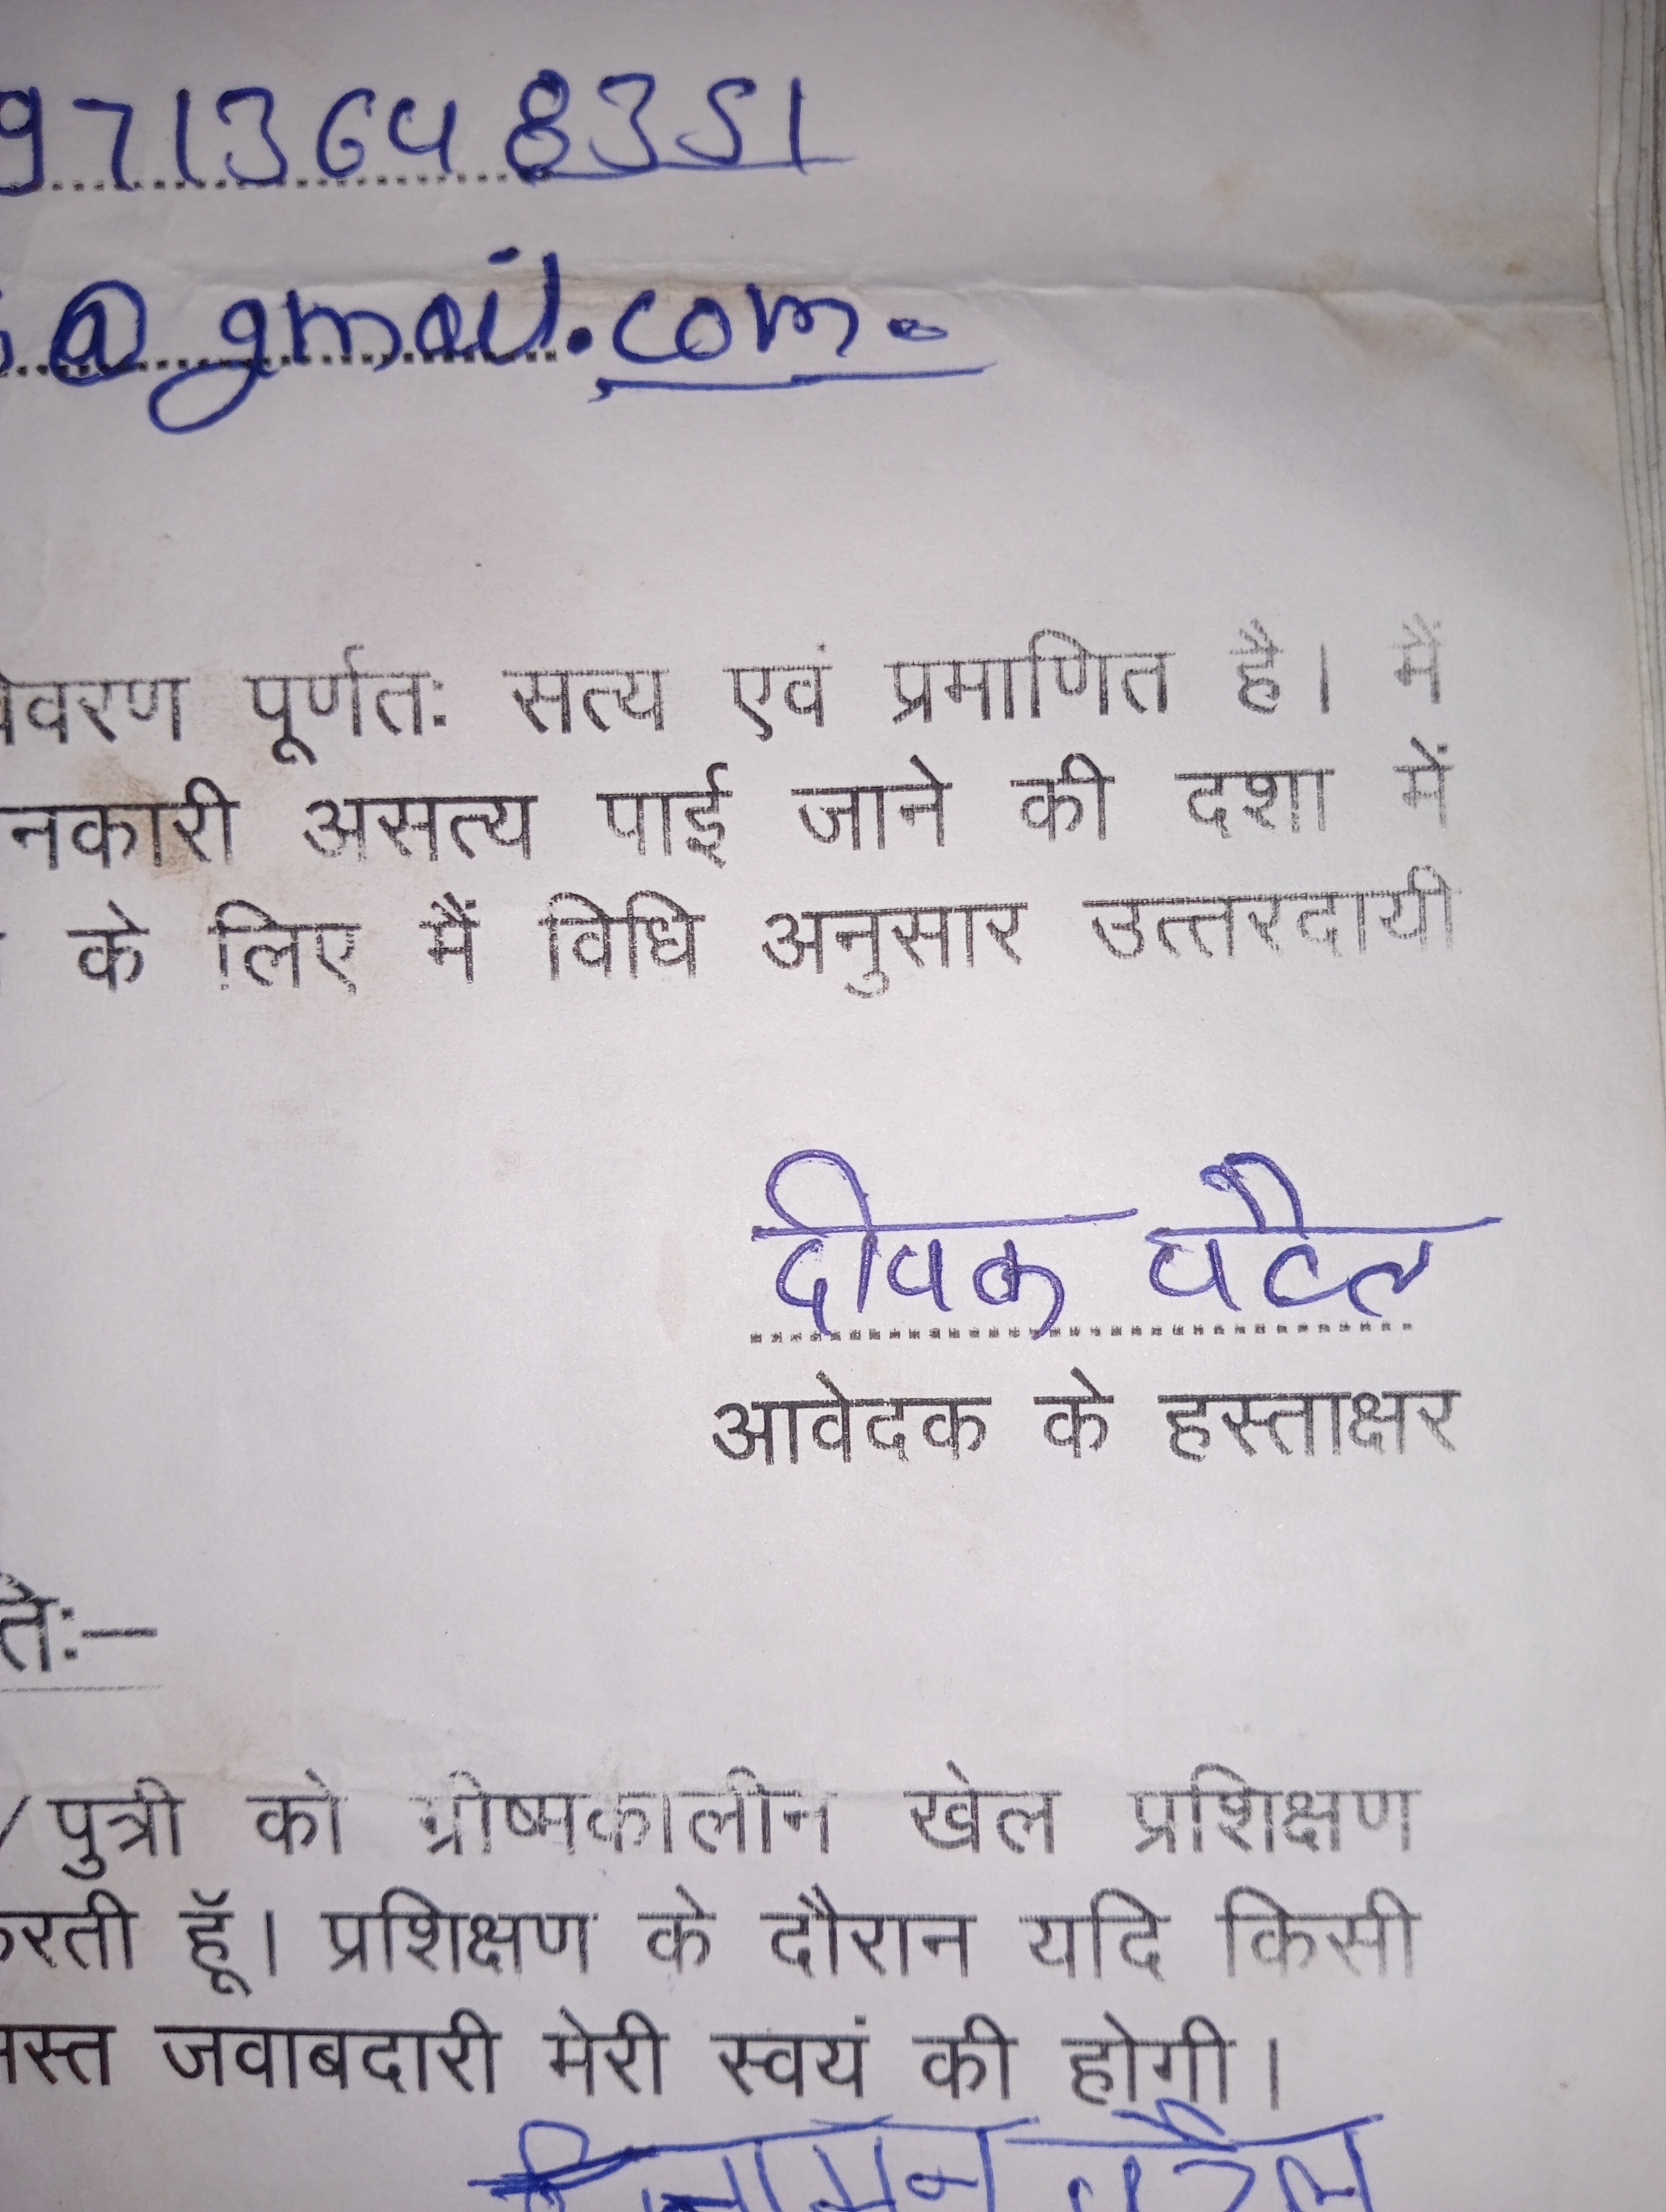 9713648351
@gmail.com.
विवरण पूर्णतः सत्य एवं प्रमाणित है। मैं
नकारी असत्य पाई जाने की दशा में
के लिए मैं विधि अनुसार उत्तरदायी
दीपक पटेल
आवेदक के हस्ताक्षर
/पुत्री को ग्रीष्मकालीन खेल प्रशिक्षण
करती हूँ। प्रशिक्षण के दौरान यदि किसी
मस्त जवाबदारी मेरी स्वयं की होगी।